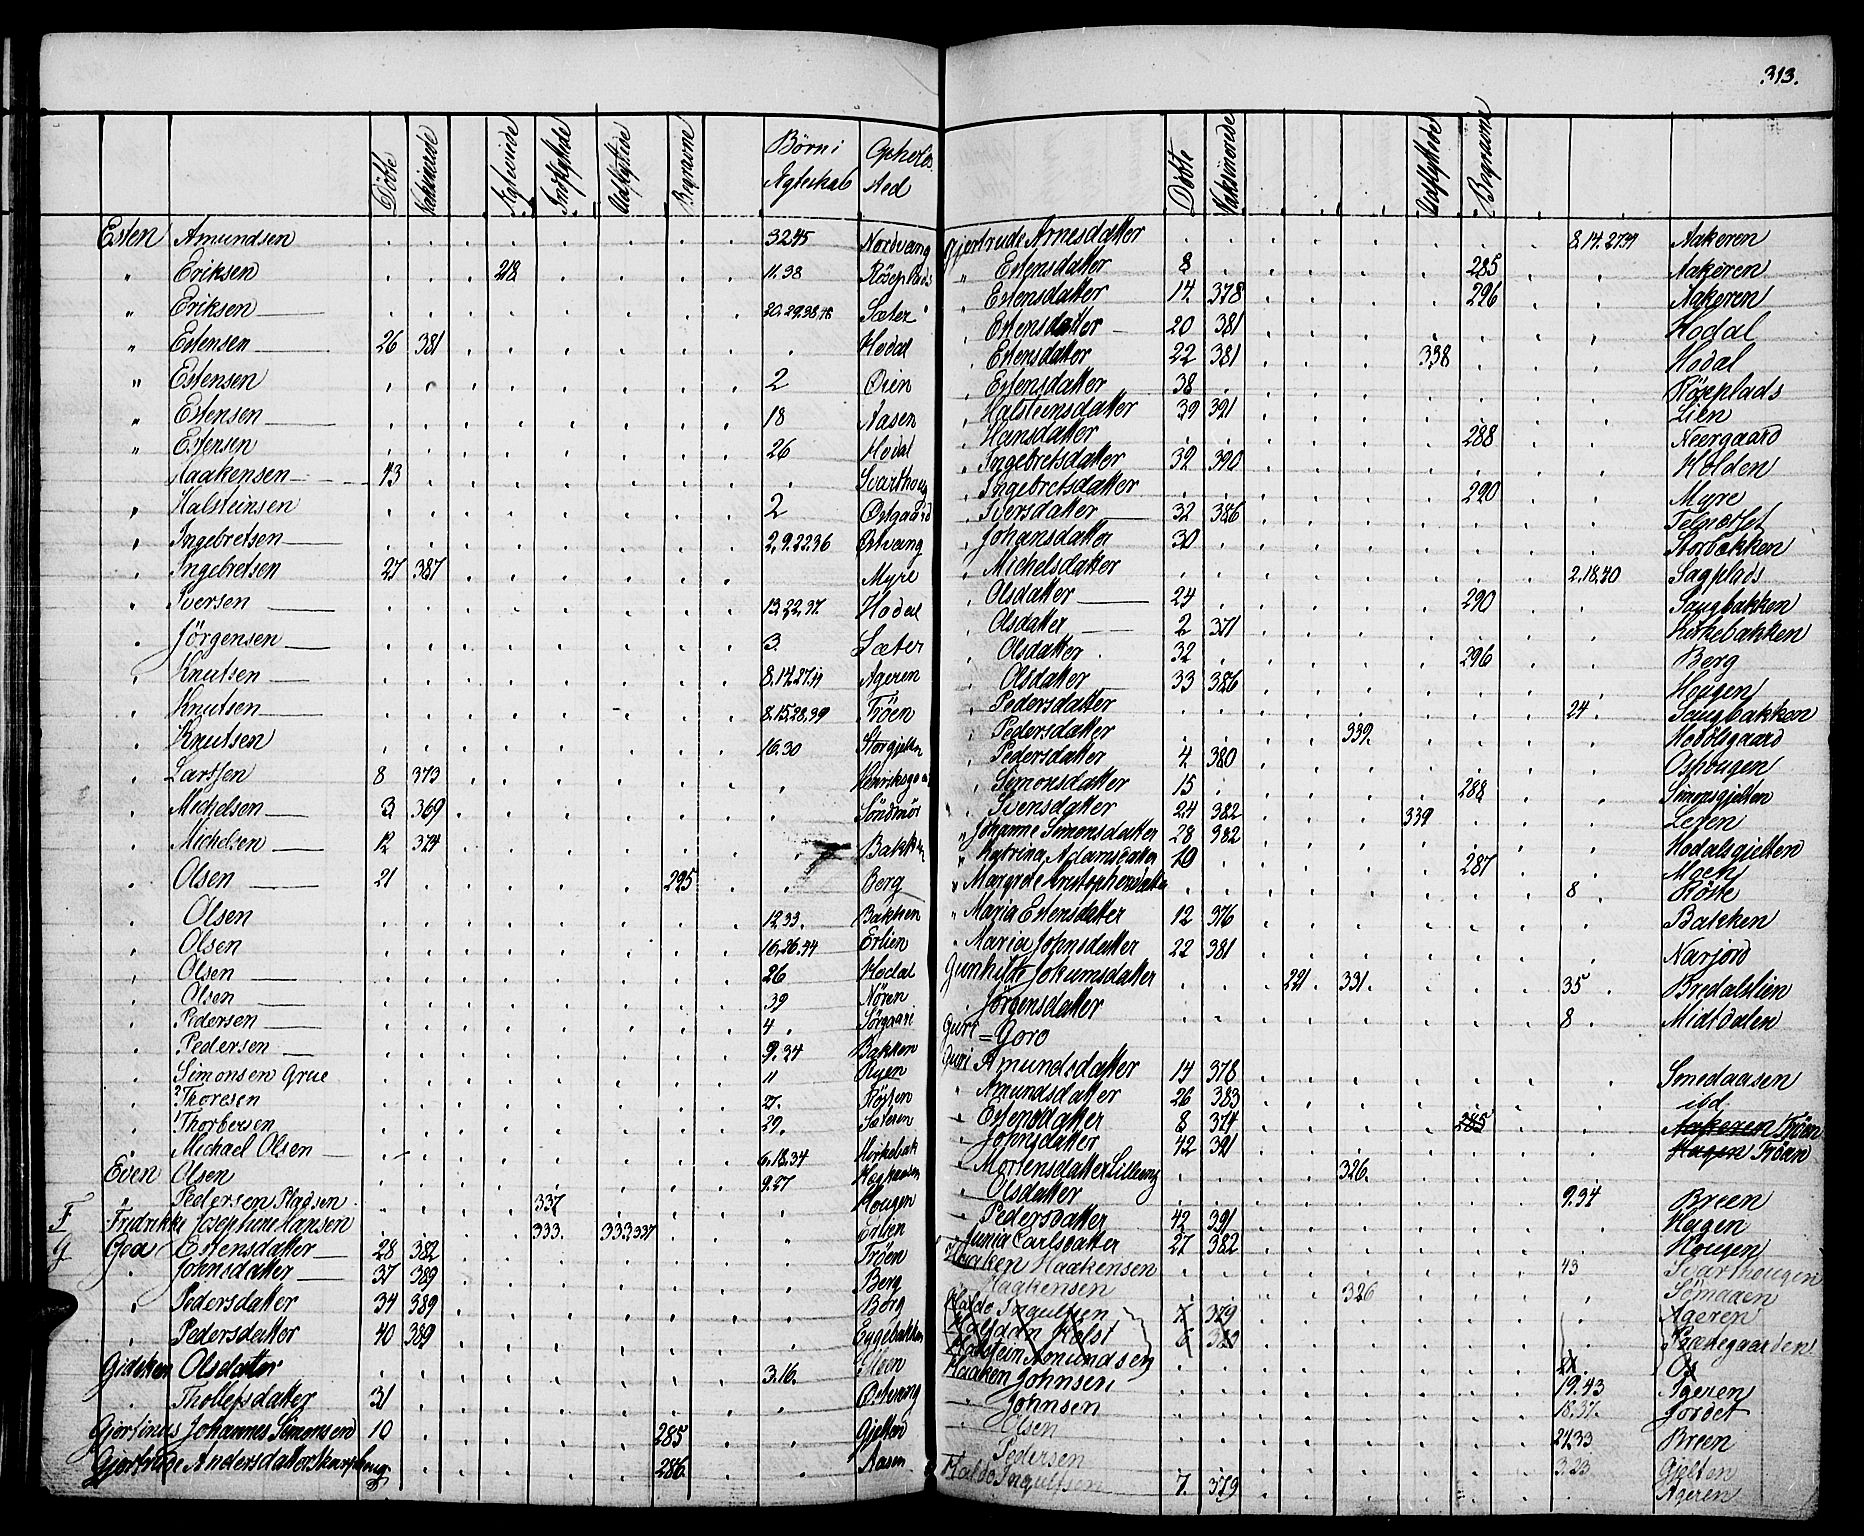 313.
Döbte Vaksinerede Egteviede Indflyttede Udflyttede Begravne Börn i Egteskab Opholds Sted
Esten Amundsen 32.45 Nordvang
" Eriksen 218 11.38 Röseplads
" Eriksen 20.29.38.48 Sæter
" Estensen 26 381 Hodal
" Estensen 2 Öien
" Estensen 18 Aasen
" Estensen 26 Hodal
Haakensen 43 Svarthoug
" Halsteinsen 2 Östgaard
" Ingebretsen 2.9.22.36 Östvang
" Ingebretsen 27 387 Myre
" Iversen 13.22.37. Hodal
" Jörgensen 3. Sæter
" Knutsen 8.14.27.39 Ageren
" Knutsen 8.15.28.39 Tröen
" Knutsen 16.30 Storgjelten
" Larssen 8 373
" Michelsen 3 369 Söndmör
" Michelsen 12 374 Bakken
" Olsen 21 295 Berg
" Olsen 12.33. Bakken
" Olsen 16.26.44 Erlien
" Olsen 26 Hodal
" Olsen 39 Nören
" Pedersen 4 Sörgaard
" Pedersen 9.24 Bakken
" Simonsen Grue 11 Ryen
" Thoresen 27. Rösten
" Thorbersen 29. Sæteren
" Michael Olsen 6.18.34 Mörkebak
Even Olsen 9.27
" Pedersen Pladsen 337 Hougen
F Fredrikke Josephine Hansen 333. 333.337 Erlien
G Goa Estensdatter 28 382 Tröen
" Johnsdatter 37 389 Berg
" Pedersdatter 34 389 Borg
" Pedersdatter 40 389 Eggebakken
Gidsken Olsdatter 3.16. Elven
" Thollefsdatter 31 Östvang
Gjertinus Johannes Simonsen 10 285 Gjelten
Gjertrude Andersdatter 286 Aasen
Döbte Vaksinerede Udflyttede Begravne
Gjertrude Arnesdatter 8.14.27.39 Aakeren
" Estensdatter 8 285 Aakeren
" Estensdatter 14 378 296 Aakeren
" Estensdatter 20 381 Hodal
" Estensdatter 22 381 338 Hodal
" Estensdatter 38 Röseplads
" Halsteinsdatter 39 391 Lien
" Hansdatter 288 Neergaard
" Ingebretsdatter 32 390 Holden
" Ingebretsdatter 290 Myre
" Iversdatter 32 386 Telnesset
" Johansdatter 30 Storbækken
" Michelsdatter 2.18.40 Sagplads
" Olsdatter 24 290 Saugbakken
" Olsdatter 2 371 Kirkebakken
" Olsdatter 32 296 Berg
" Olsdatter 33 386 Hougen
" Pedersdatter 24 Saugbakken
" Pedersdatter 339. Hodalsgaard
" Pedersdatter 4 380 Oshougen
" Simonsdatter 15 288 Simensgjelten
" Svensdatter 24 382 339 Leren
" Johanne Simonsdatter 28 382 Hodalsgjelten
" Katrina Adamsdatter 10 287 Moen
" Margrde Kristophersdatter 8 Röste
" Maria Estensdatter 12 376 Bakken
" Maria Johnsdatter 22 381 Narjord
Gunhild Jokumsdatter 221 331. 35 Bredalslien
" Jörgensdatter 8 Midtdalen
Guri = Goro
Guri Amundsdatter 14 378 Smedaasen
" Amundsdatter 26 383 ibd
" Estensdatter 8 374 285 Aakeren Tröen
" Johnsdatter 42 391 Hagen Tröen
" Mortensdatter Lilleeng 326.
" Olsdatter 9.34 Breen
" Pedersdatter 42 391 Hagen
Carlsdatter 27 382 Hougen
Haaken Haakensen 43 Svarthougen
" Haakensen 326 Sömoen
Haldo Ingulfsen 7 379 Ageren
Halfdan Holst 6 Præstegaarden
Halstein Amundsen 21. Os
Haaken Johnsen 19.43 Ageren
" Johnsen 18.37. Jordet
" Olsen 24.33 Breen
" Pedersen 3.23 Gjelten
Haldo Ingulfsen 7. 379 Ageren